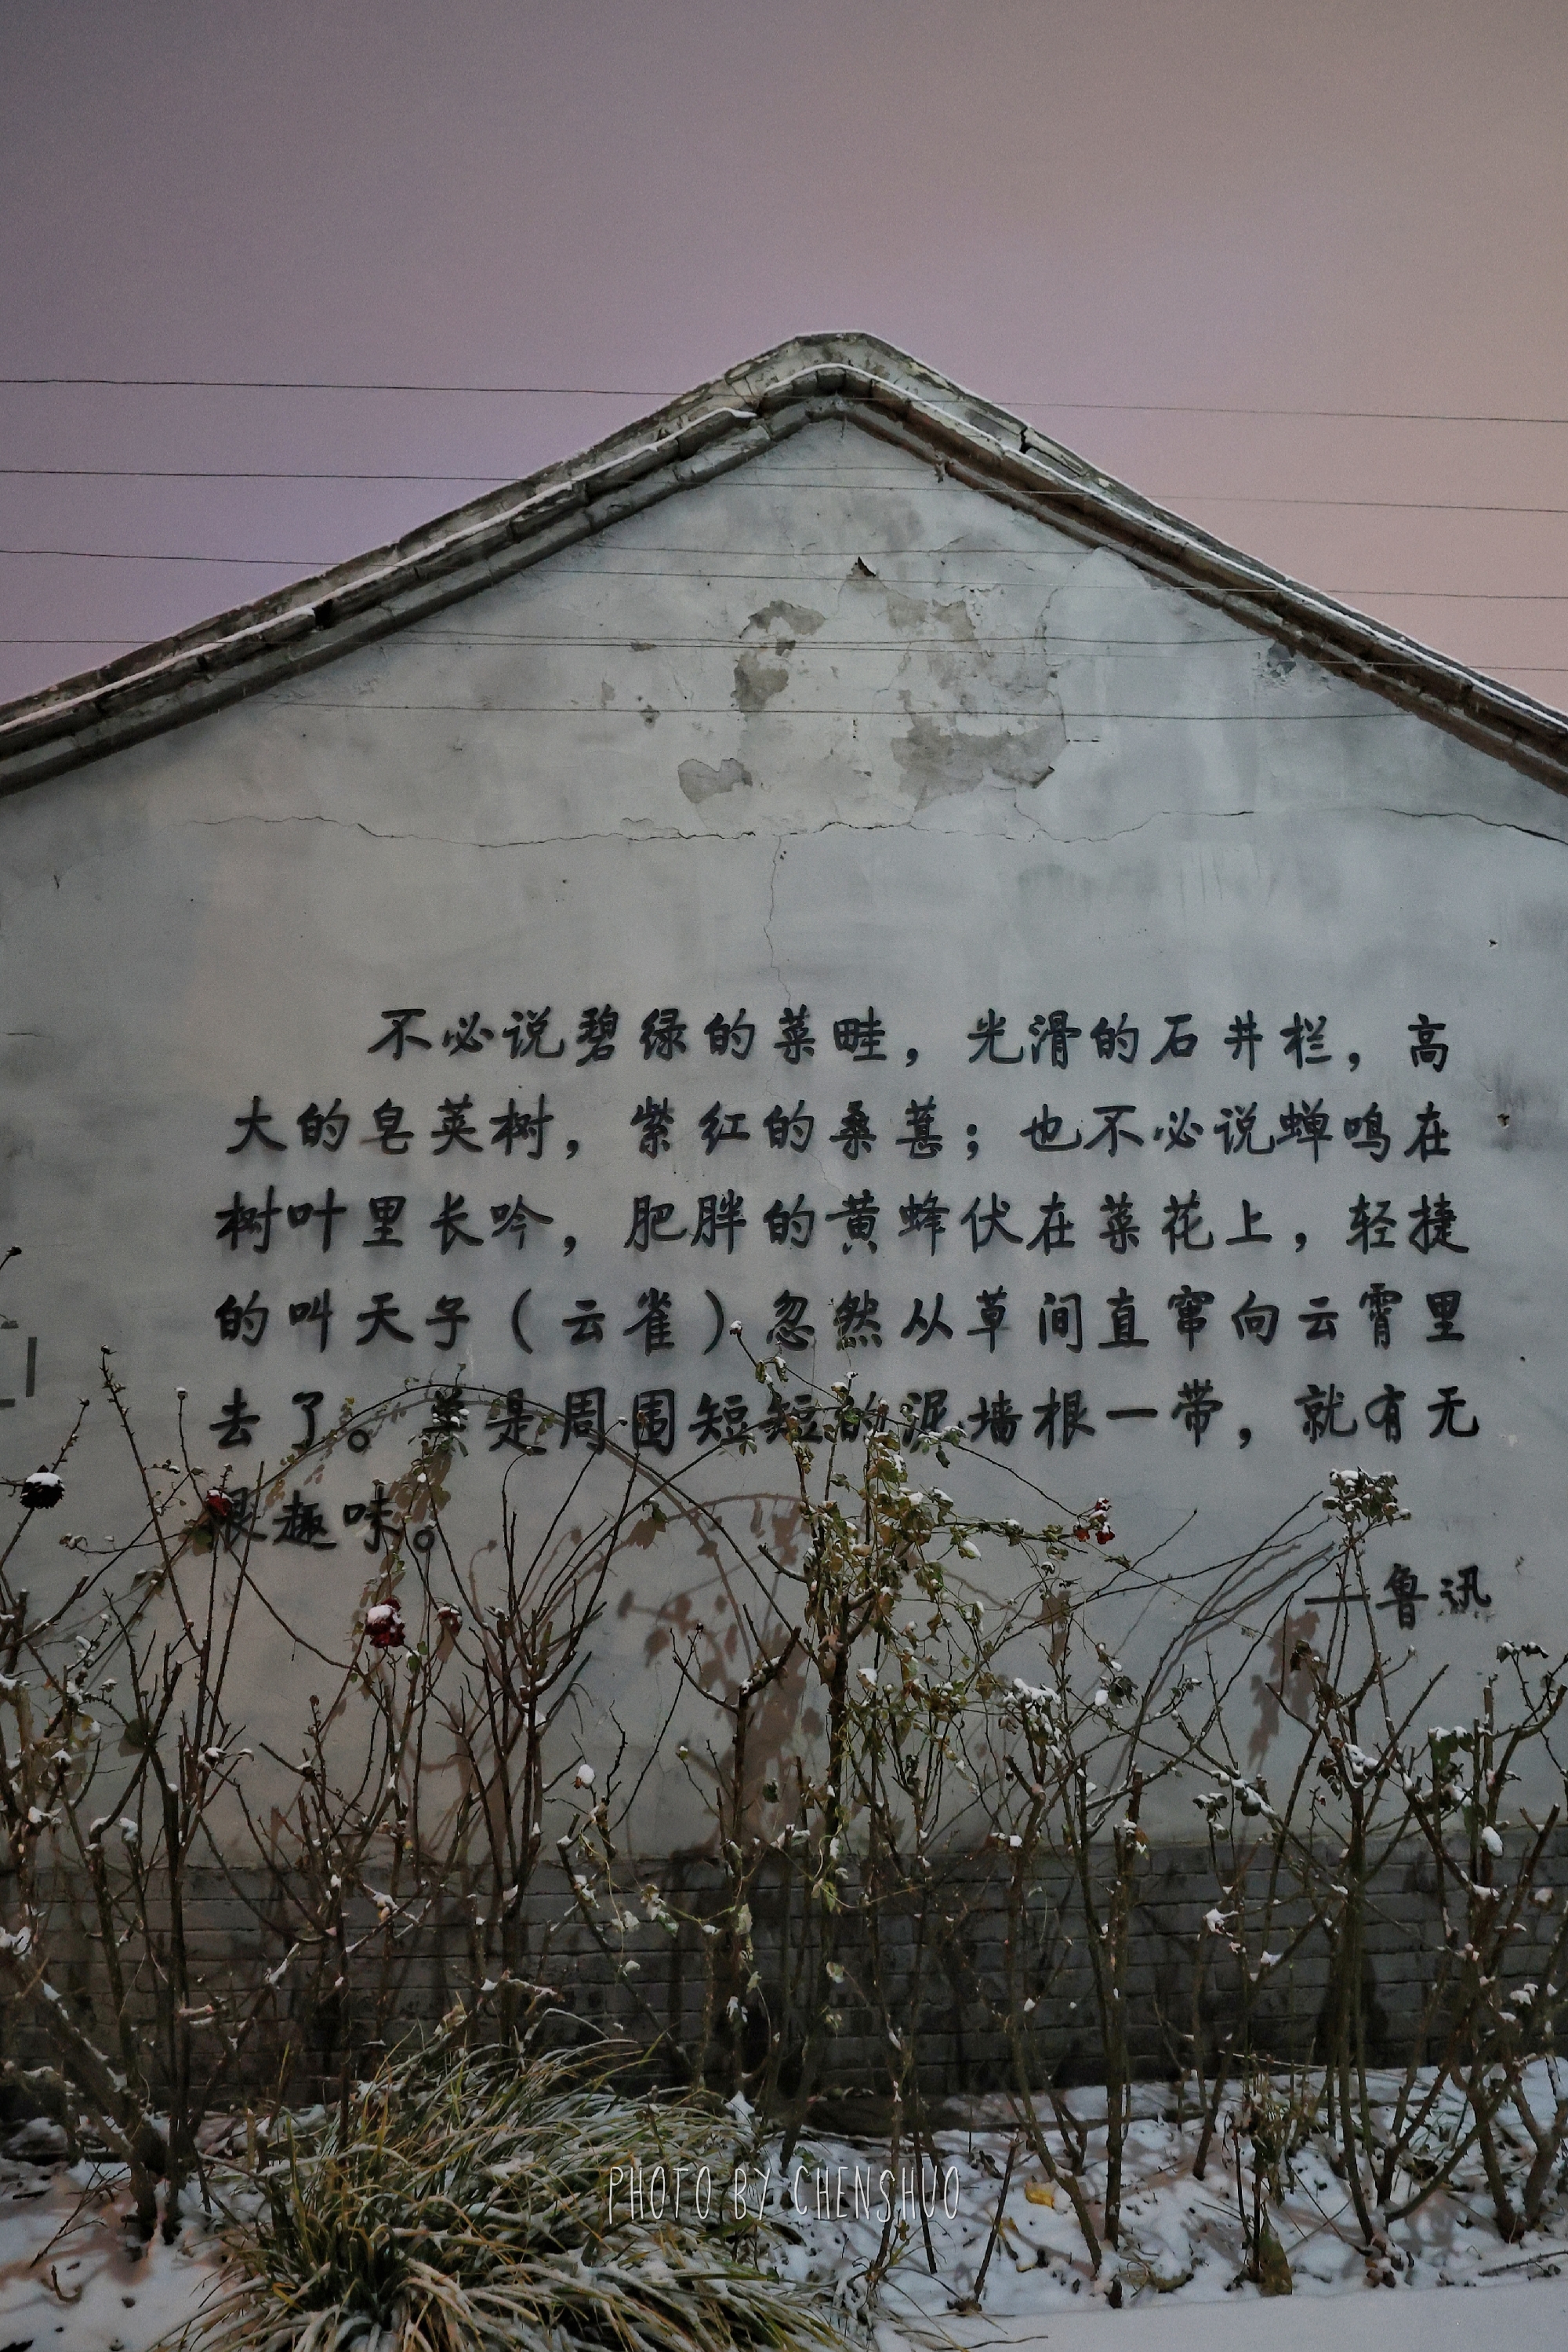 不必说碧绿的菜畦，光滑的石井栏，高
大的皂荚树，紫红的桑葚；也不必说蝉鸣在
树叶里长吟，肥胖的黄蜂伏在菜花上，轻捷
的叫天子（云雀）忽然从草间直窜向云霄里
去了。单是周围短短的泥墙根一带，就有无
限趣味。
——鲁迅
PHOTO BY CHENSHUO